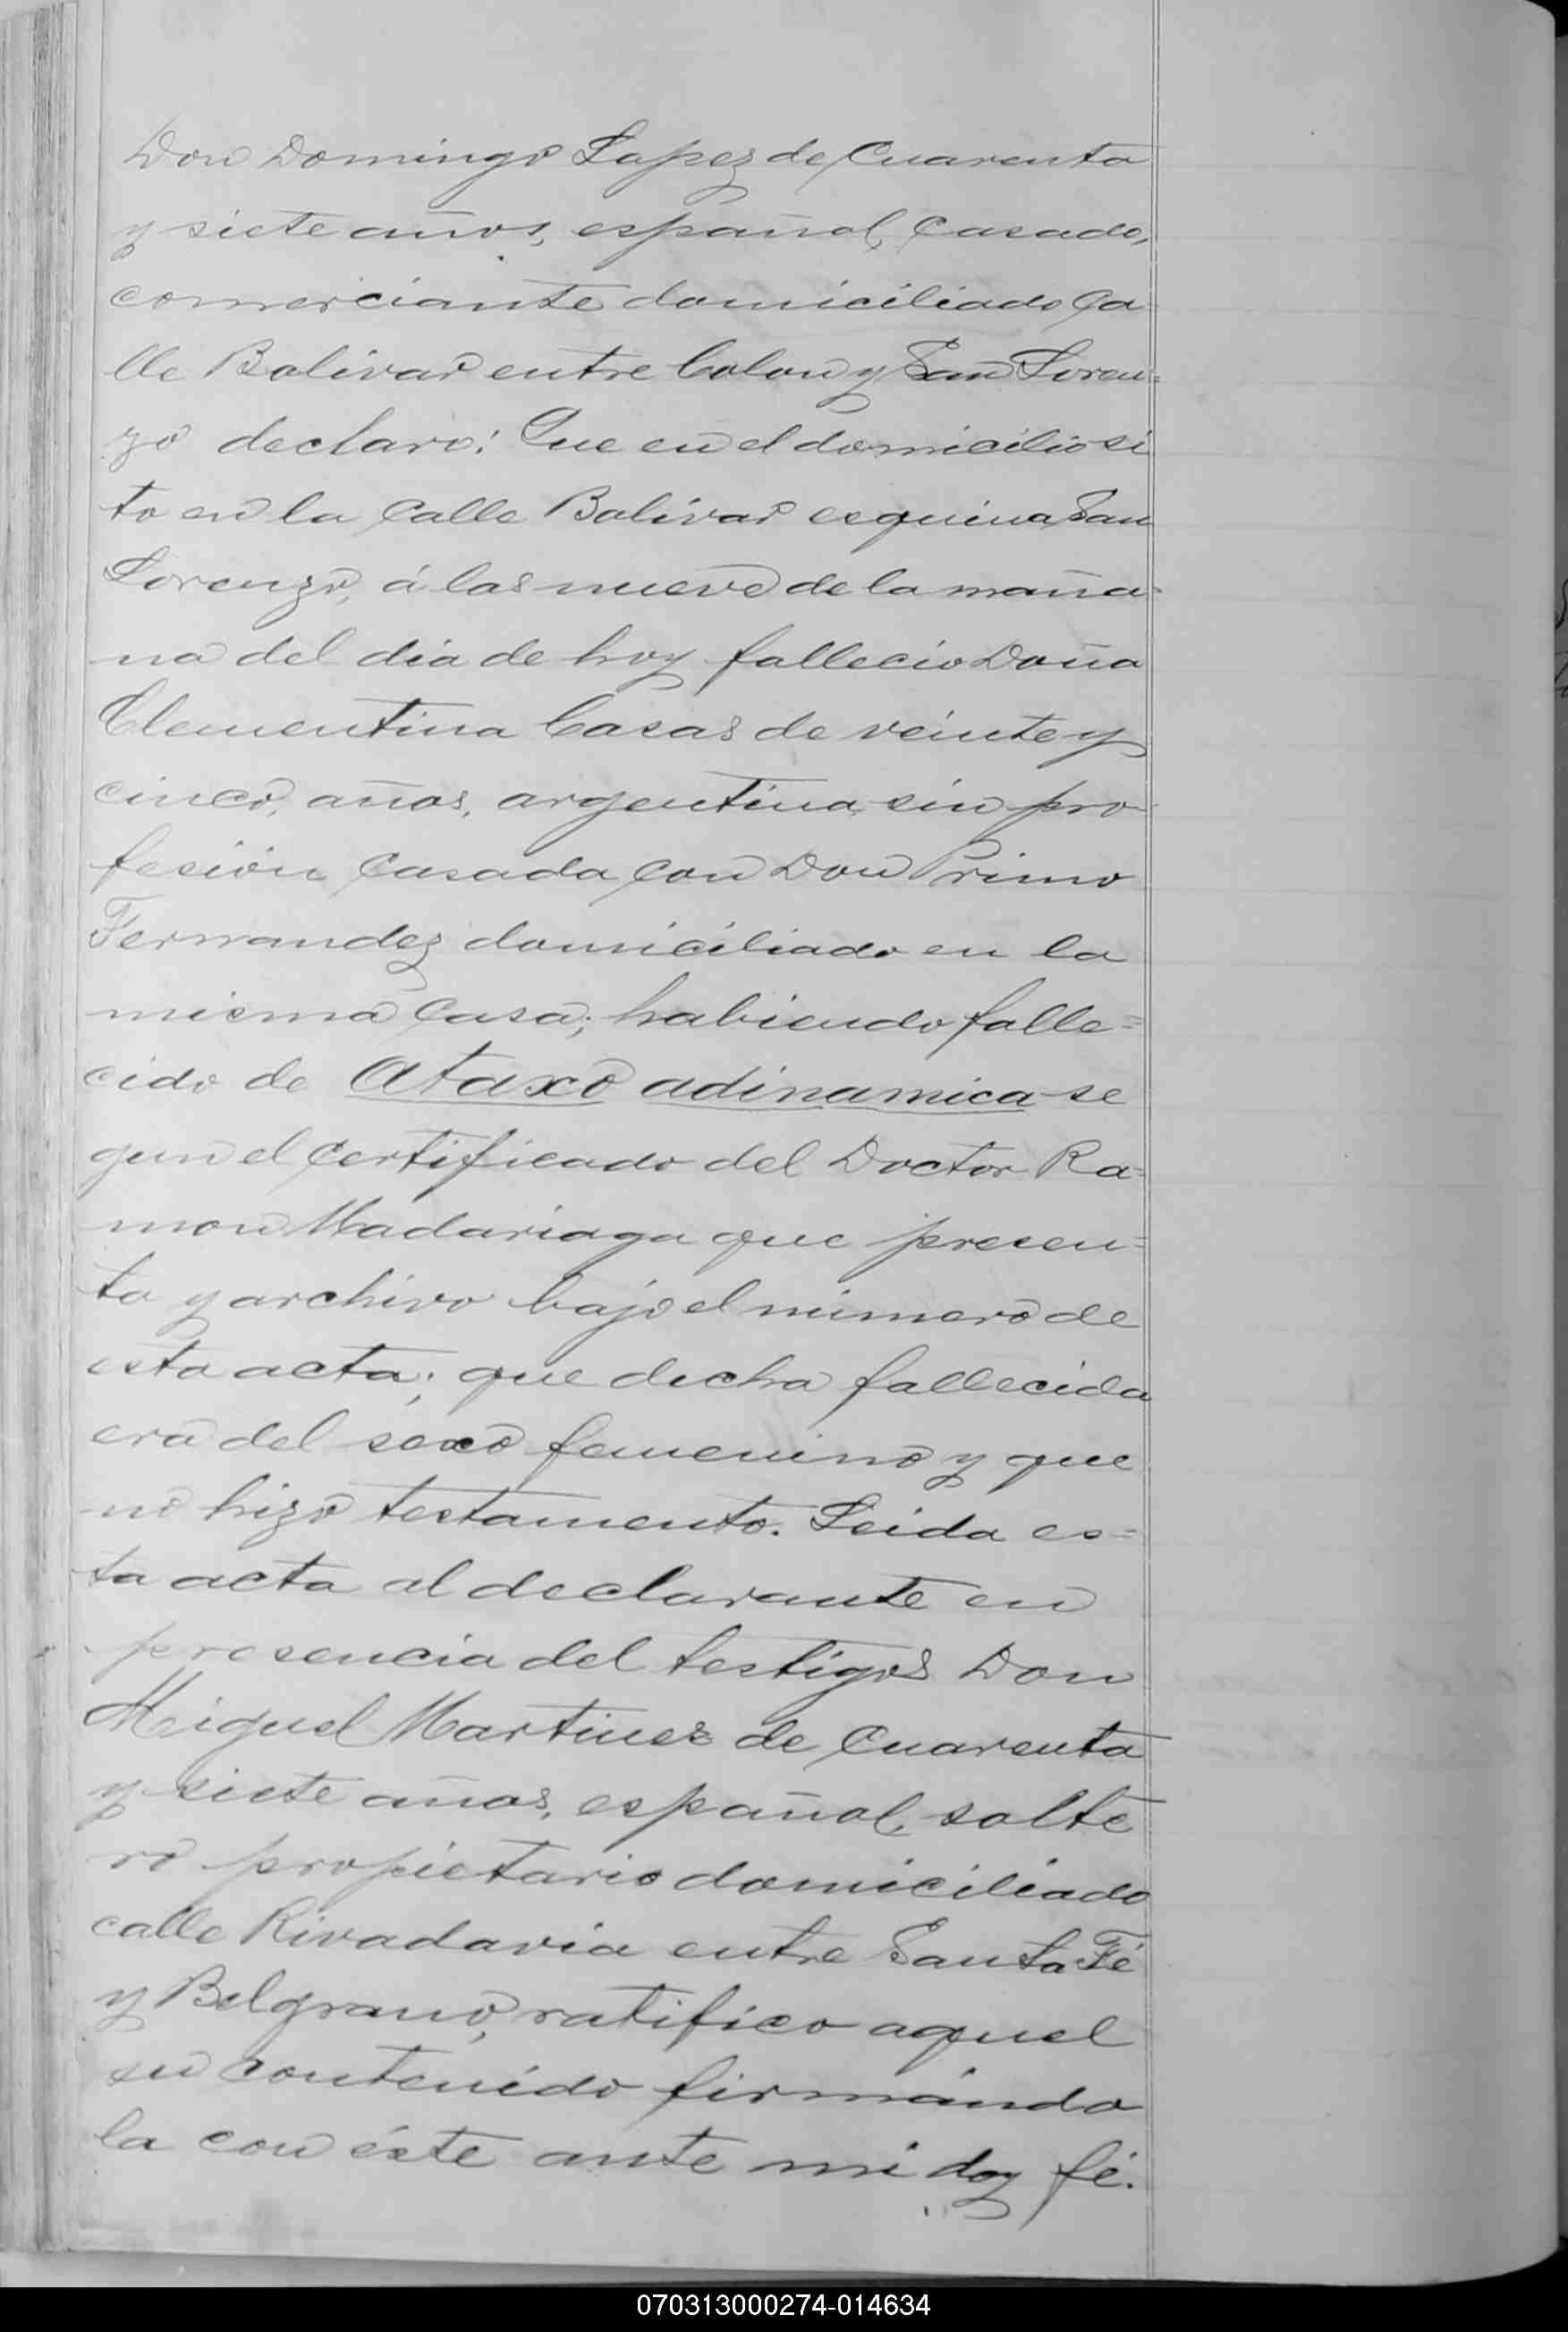 Don Domingo Lopez de Cuarenta
y siete años, español, Casado,
comerciante domiciliado Ca-
lle Bolivar entre Colon y San Loren=
zo declaró: Que en el domicilio si
to en la Calle Bolivar esquina San
Lorenzo, á las nueve de la maña-
na del dia de hoy fallecio Doña
Clementina Casas de veinte y
cinco, años, argentina, sin pro-
fesión Casada Con Don Primo
Fernandez domiciliado en la
misma Casa; habiendo falle=
cido de Ataxo adinamica se
gun el Certificado del Doctor Ra=
mon Madariaga que presen=
ta y archivo bajo el número de
esta acta; que dicha fallecida
era del sexo femenino y que
no hizo testamento. Leida es=
ta acta al declarante en
presencia del testigos Don
Miguel Martinez de Cuarenta
y siete años, español, solte
ro propietario domiciliado
calle Rivadavia entre Santa Fé
y Belgrano, ratifico aquel
su contenido firmando
la con éste ante mi doy fé.
070313000274-014634